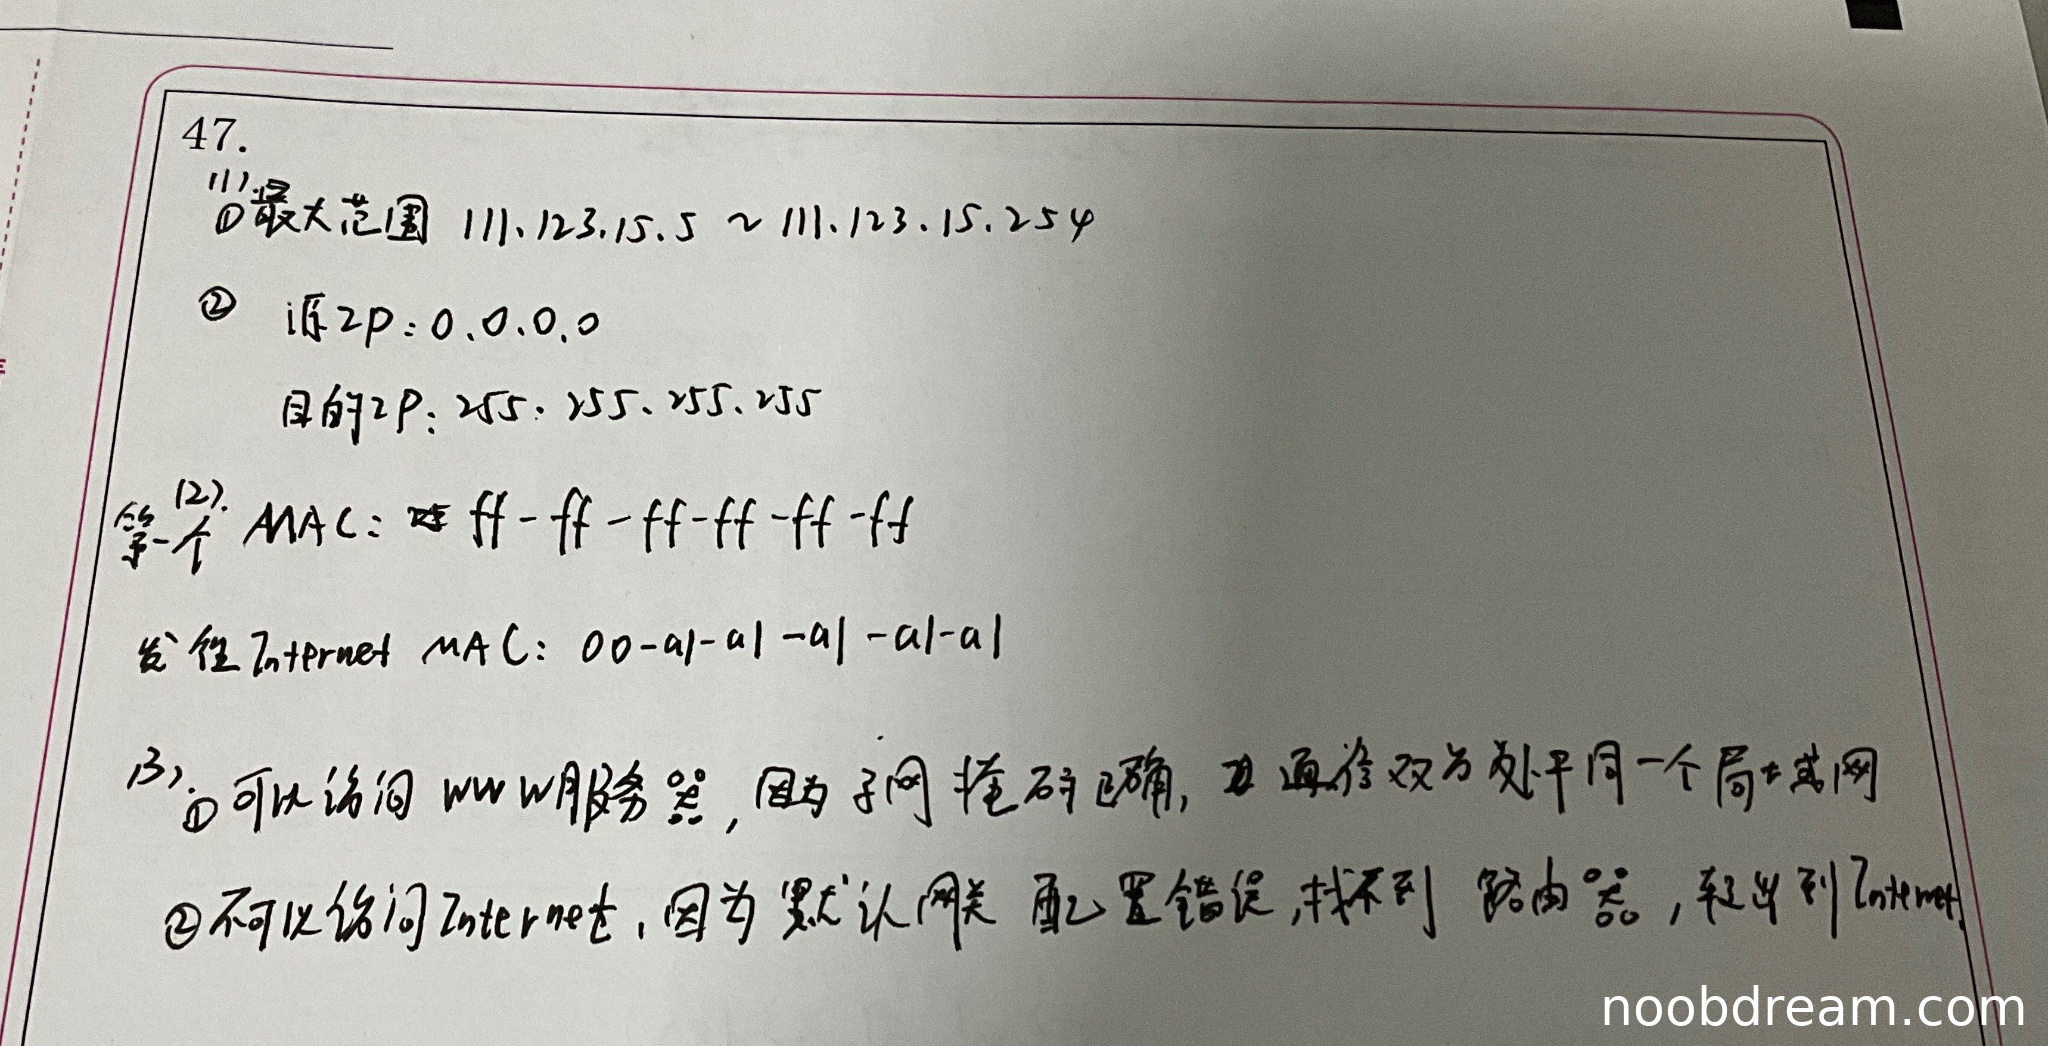 47.
(1).
①最大范围 111.123.15.5 ~ 111.123.15.254
② 源IP:0.0.0.0
目的IP:255.255.255.255
(2).
第一个 MAC: ff-ff-ff-ff-ff-ff
发往Internet MAC: 00-a1-a1-a1-a1-a1
(3).①可以访问 WWW服务器,因为子网掩码正确, 通信双方处于同一个局域网
②不可以访问Internet,因为默认网关 配置错误,找不到 路由器, 到Internet.
noobdream.com